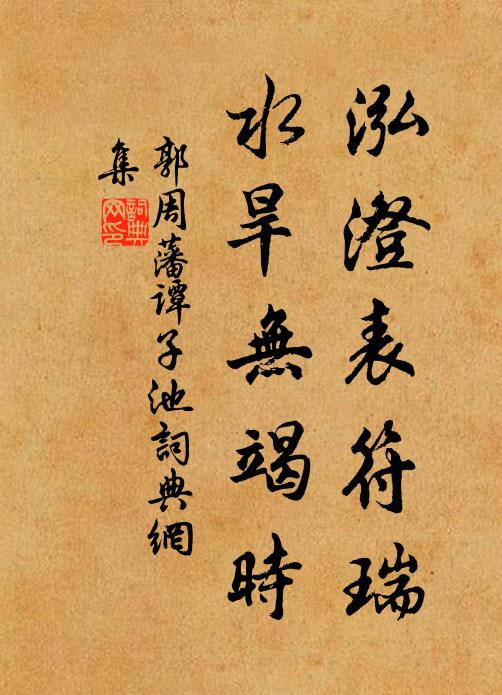 泓澄表符瑞
水旱無竭時
郭周藩譚子池詞典網
集
詞典
网印